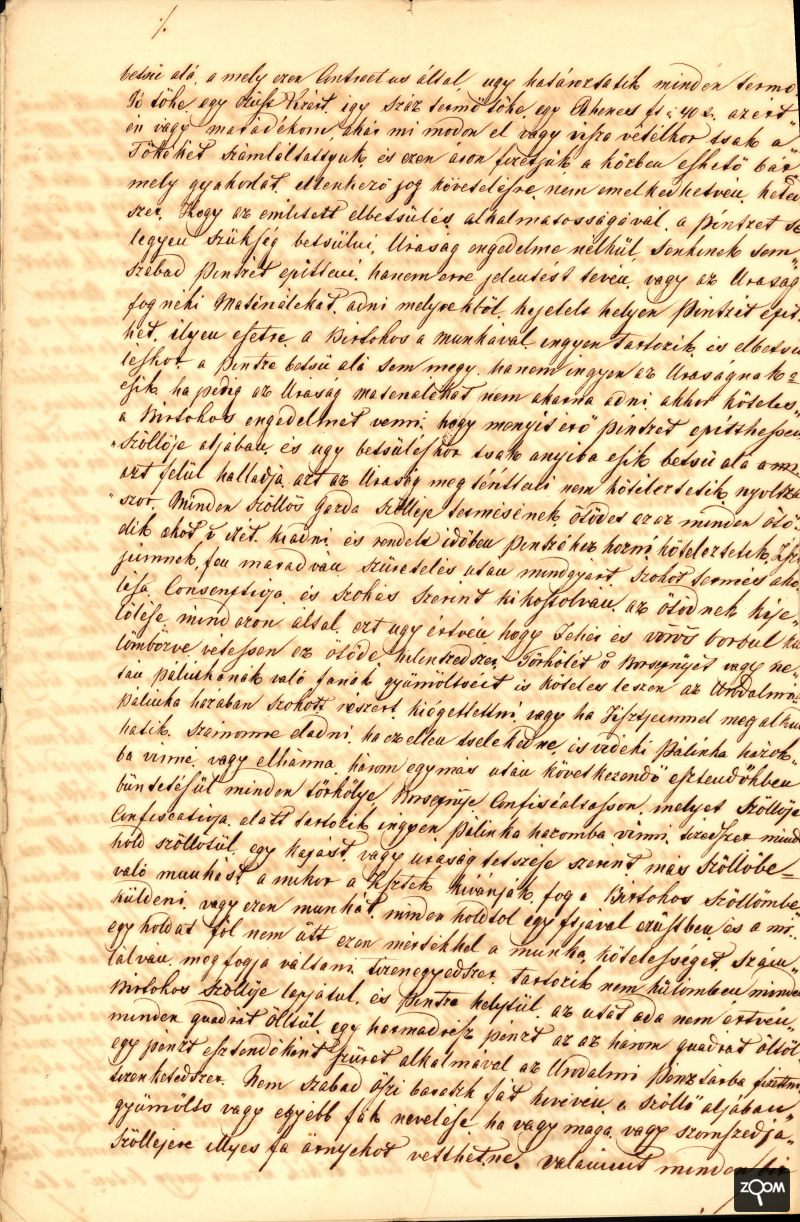 betsü alá, a mely ezen Contractus által, ugy határoztatik minden termő
Tő töke, egy ezüst Xrért, igy száz termő töke, egy Rhenes ft: 40 x. azért
én vagy maradékom, akár mi modon el vagy vissza vételkor tsak a
Tőkéket számláltattyuk, és ezen áron fizetjük a közben eshető bár
mely gyakorlat, ellenkező jog követelésre nem emelkedhetvén, heted
szer. Hogy az emlitett elbetsülés, alkalmatosságával, a pintzét se
legyen szükség betsülni, Uraság engedelme nélkül, senkinek sem
szabad pintzét epitteni, hanem erre jelentést tevén, vagy az Uraság
fog neki Materiálékat, adni melyekből, helyes helyen Pintzét épit
het, ilyen esetre, a Birtokos a munkával ingyen tartozik, és elbetsü
léskor, a pintze betsü alá sem megy, hanem ingyen az Uraságnak
esik, ha pedig az Uraság materialékat nem akarna adni, akkor köteles
a Birtokos engedelmet venni, hogy menyit érő pintzét epitthessen
Szöllője aljában, és ugy betsüléskor tsak anyiba esik betsü alá a mi
azt felül halladja, azt az Uraság megtérittetni nem köteleztetik, nyoltza
szor. Minden Szöllős Gazda Szöllője termésének, ötödét azaz minden ötö
dik akót kiadni, és rendelt időben pintzéhez hozni, köteleztetik,
jeimnek, fen maradván szüretelés után mindgyárt, szokot termés
Consensiója, és szokás szerint kikostolván, az ötödnek kije
lölése, mind azon által, ezt ugy értvén hogy Fehér és vörös borbul kü
lömbözve vétessen ez ötöde, kilentzedszer, Törkölét s Borseprűjét vagy ne
tán pálinkának való fanak gyümöltseit is köteles leszen az Urodalmi
Pálinka házaban szokott részért, kiégettettni, vagy ha Tisztjeimmel megalku
hatik, számomra eladni, ha ez ellen tselekedne, és vidéki Pálinka házok
ba vinné, vagy elhánná, három egymás után következendő esztendőkben
büntetésül minden törkölye, Borseprűje Confiscáltasson, melyet Szöllője
Confiscatioja, alatt tartozik ingyen Pálinka házomba vinni, tizedszer mind
hold szöllőtül, egy kapást, vagy uraság tetszése szerint, más szöllőbe
való munkást, a mikor a Tisztek kivánják, fog a Birtokos Szöllőmbe
küldeni, vagy ezen munkát, minden holdtol egy ftjával ezüstben, és a mi
egy holdat föl nem ütt ezen mértékkel a munka, kötelességet, szám
lálván, megfogja váltani, tizenegyedszer, tartozik nem külömben minden
Birtokos Szöllője lapjátul, és Pintze helytül, az utat oda nem értvén
minden quadrat öltül, egy harmadrész pénzt az az három quadrat öltöl
egy pénzt esztendőként Szüret alkalmával az Urodalmi Pénztárba fizettni
tizenkettedszer. Nem szabad öszi baratzk fát kivévén a szöllő aljában
gyümölts vagy egyébb fák nevelése, ha vagy maga vagy szomszédja
Szöllejére illyes fa árnyékot vetthetne. Valamint minden bir